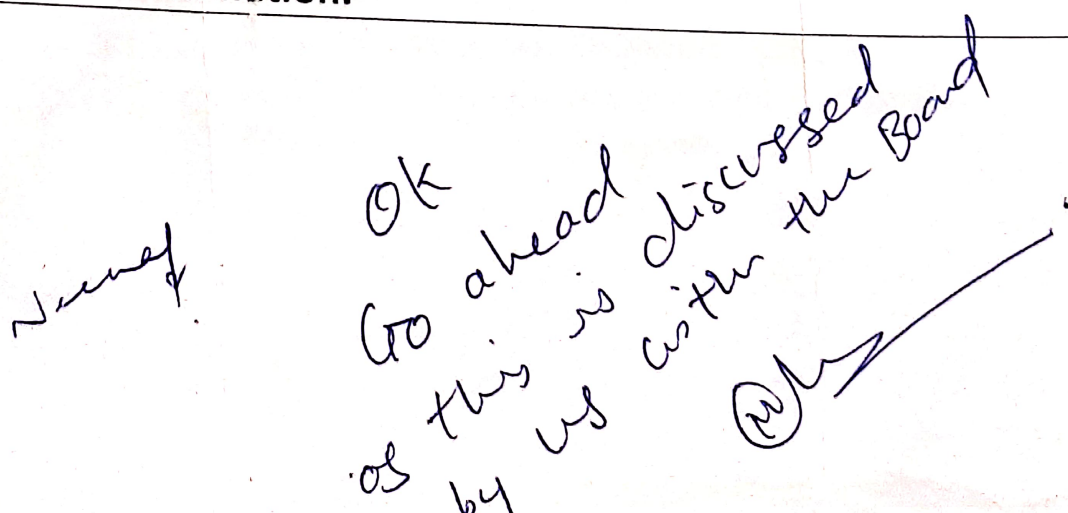 OK
Go ahead
as this is discussed
by us with the Board